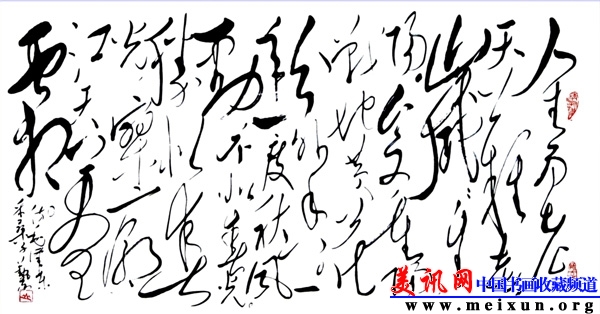 人生易老
天难老
岁岁重
阳今又重阳
战地黄花
分外香一年
一度秋风
劲不似春光
胜似春光
寥廓
江天万里
霜
美讯网中国书画收藏频道
www.meixun.org